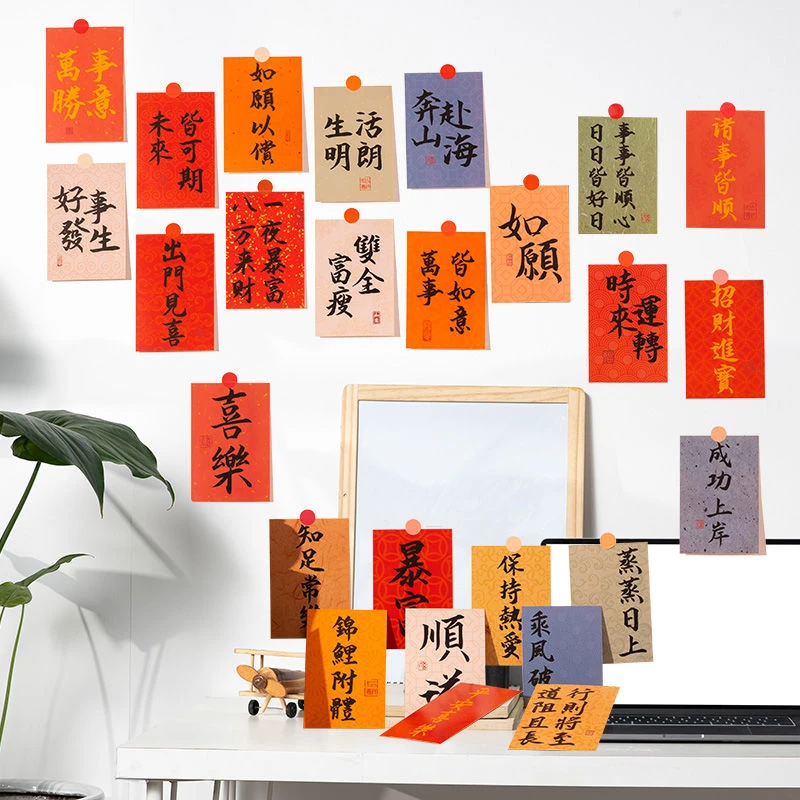 萬事
勝意
未來
皆可期
如願以償
生活
明朗
奔山
赴海
事事皆順心
日日皆好日
諸事皆順
好事
發生
出門見喜
一夜暴富
八方来財
雙全
富瘦
萬事
皆如意
如願
時來
運轉
招財進寶
喜樂
成功上岸
知足常樂
暴富
保持熱愛
蒸蒸日上
錦鯉附體
順
乘風破
平安喜樂
道阻且長
行則將至